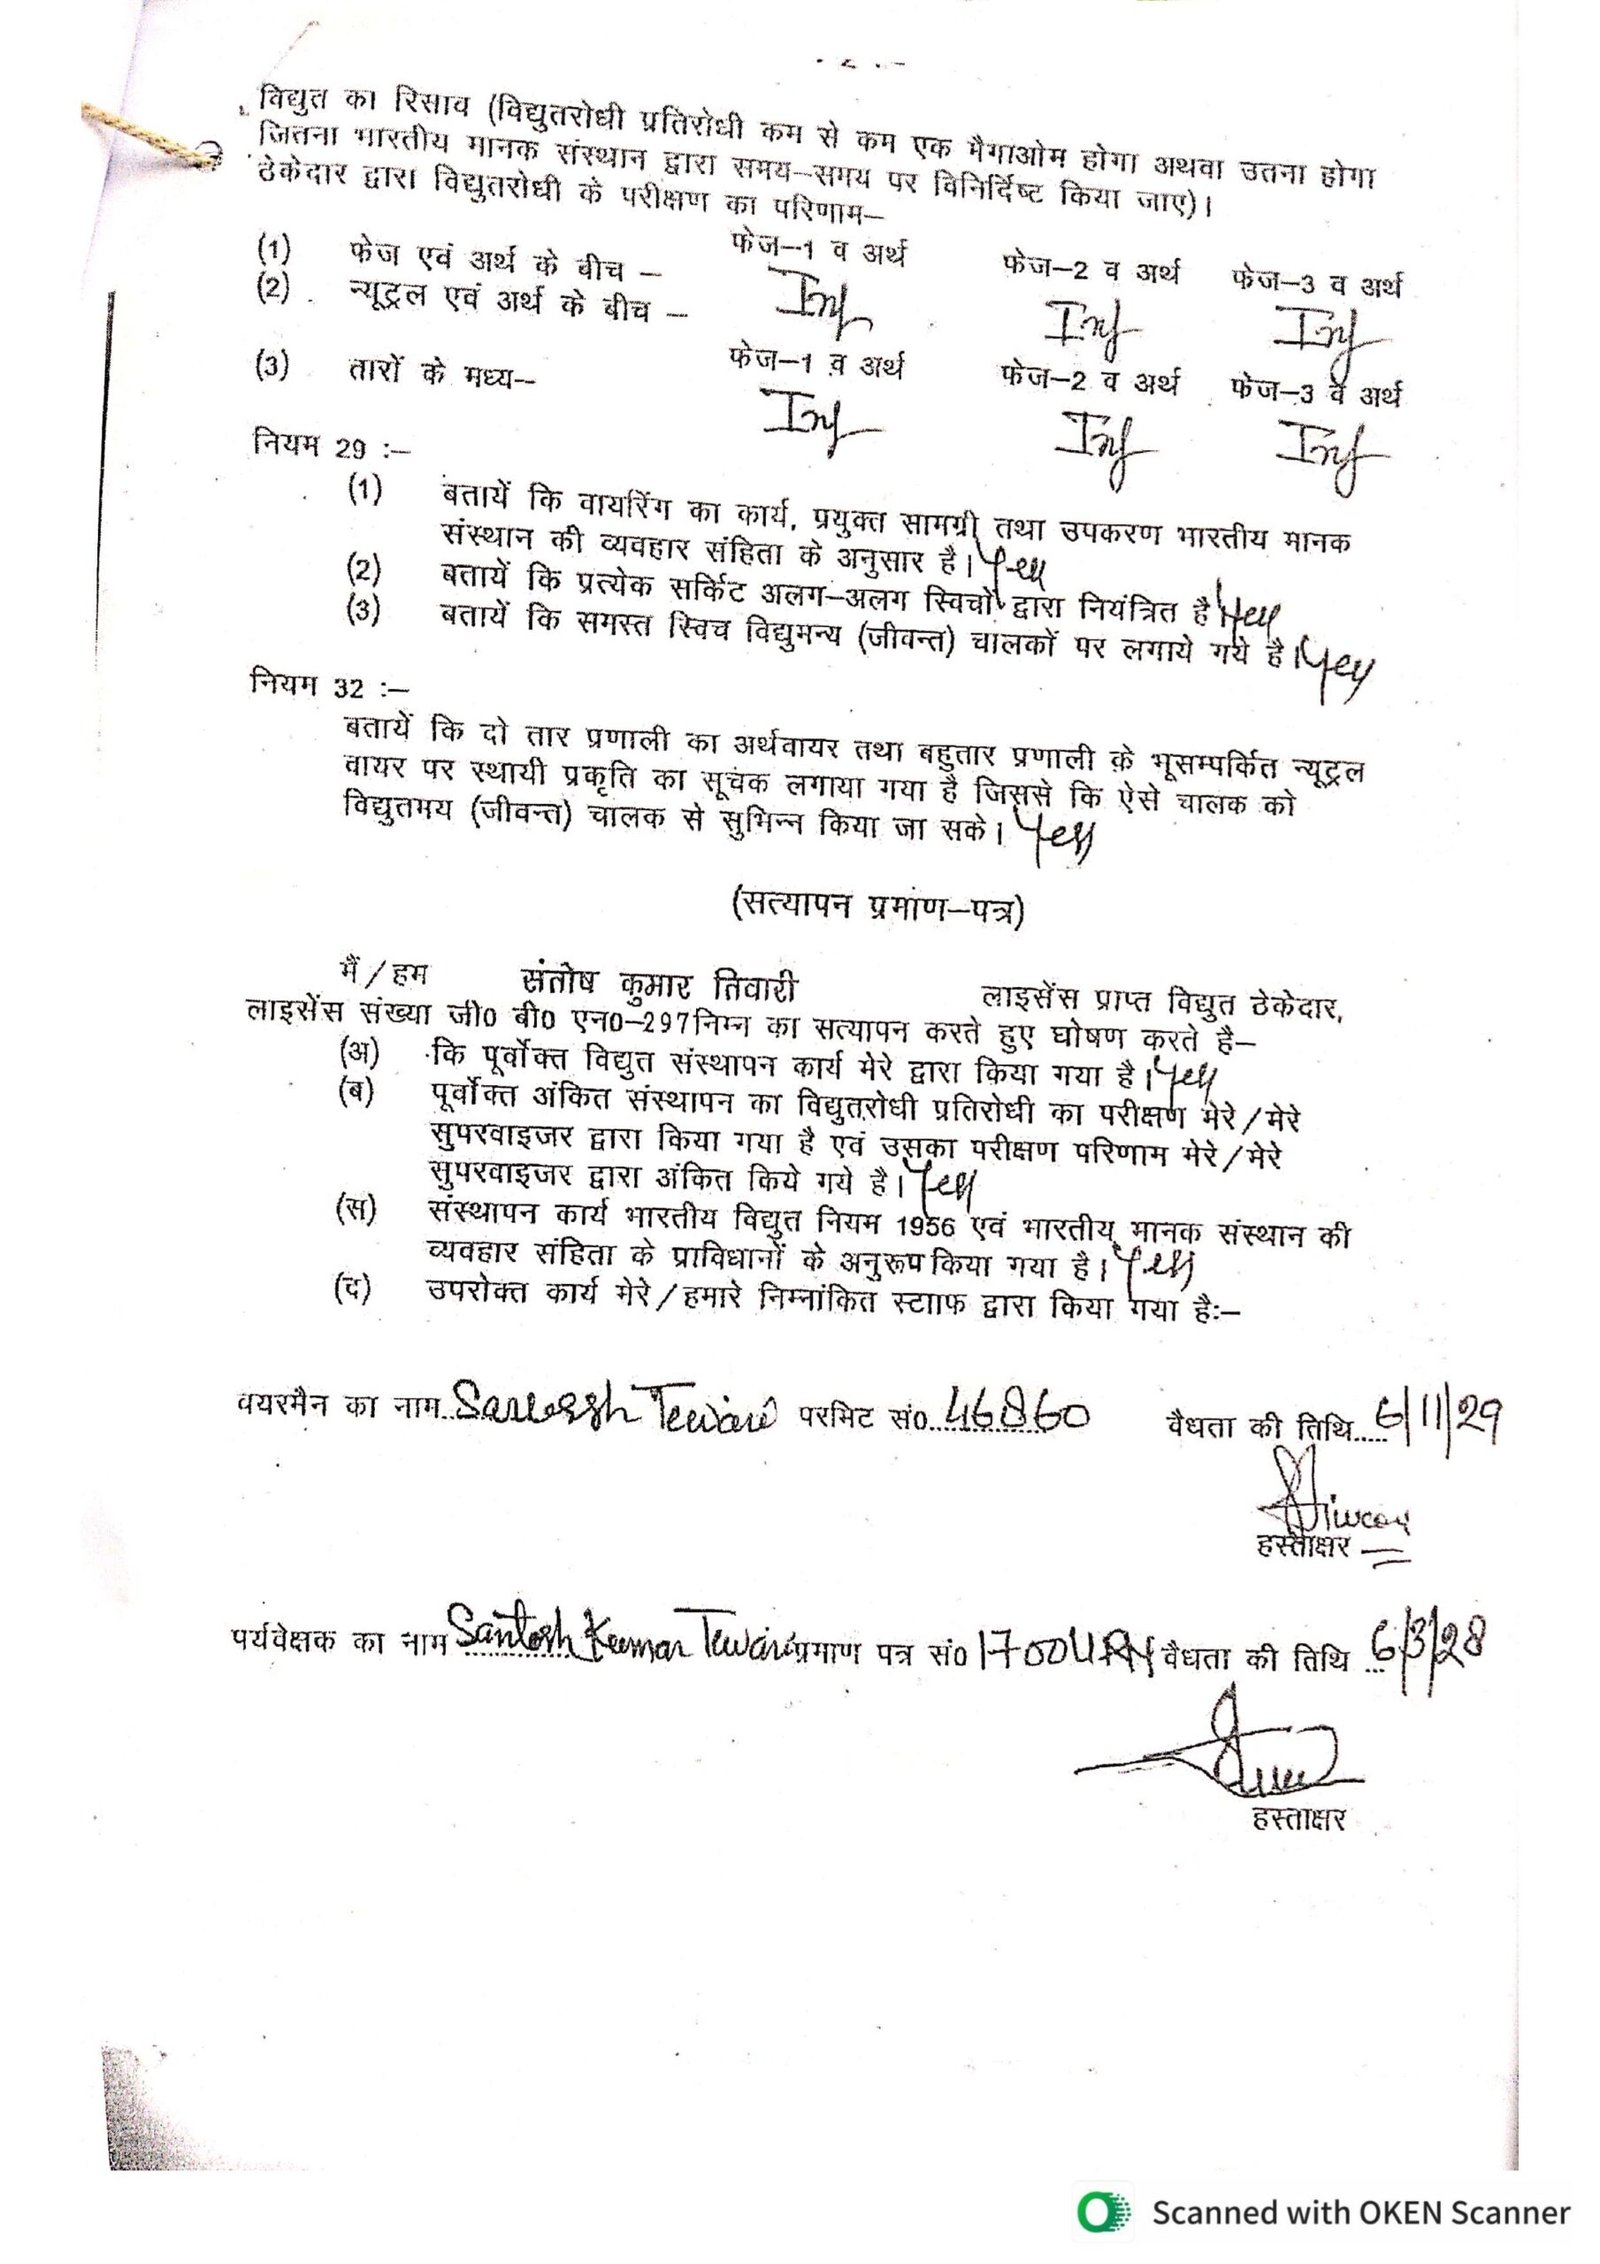 - 2 -
विद्युत का रिसाव (विद्युतरोधी प्रतिरोधी कम से कम एक मैगाओम होगा अथवा उतना होगा
जितना भारतीय मानक संस्थान द्वारा समय–समय पर विनिर्दिष्ट किया जाए)।
ठेकेदार द्वारा विद्युतरोधी के परीक्षण का परिणाम–
फेज–1 व अर्थ फेज–2 व अर्थ फेज–3 व अर्थ
(1) फेज एवं अर्थ के बीच –
Inf Inf Inf
(2) न्यूट्रल एवं अर्थ के बीच –
फेज–1 व अर्थ फेज–2 व अर्थ फेज–3 व अर्थ
(3) तारों के मध्य--
Inf Inf Inf
नियम 29 :–
(1) बतायें कि वायरिंग का कार्य, प्रयुक्त सामग्री तथा उपकरण भारतीय मानक
संस्थान की व्यवहार संहिता के अनुसार है। Yes
(2) बतायें कि प्रत्येक सर्किट अलग–अलग स्विचों द्वारा नियंत्रित है Yes
(3) बतायें कि समस्त स्विच विद्युमन्य (जीवन्त) चालकों पर लगाये गये है। Yes
नियम 32 :–
बतायें कि दो तार प्रणाली का अर्थवायर तथा बहुतार प्रणाली के भूसम्पर्कित न्यूट्रल
वायर पर स्थायी प्रकृति का सूचक लगाया गया है जिससे कि ऐसे चालक को
विद्युतमय (जीवन्त) चालक से सुभिन्न किया जा सके। Yes
(सत्यापन प्रमाण–पत्र)
मैं/हम संतोष कुमार तिवारी लाइसेंस प्राप्त विद्युत ठेकेदार,
लाइसेंस संख्या जी0 बी0 एन0–297 निम्न का सत्यापन करते हुए घोषण करते है–
(अ) कि पूर्वोक्त विद्युत संस्थापन कार्य मेरे द्वारा किया गया है। Yes
(ब) पूर्वोक्त अंकित संस्थापन का विद्युतरोधी प्रतिरोधी का परीक्षण मेरे/मेरे
सुपरवाइजर द्वारा किया गया है एवं उसका परीक्षण परिणाम मेरे/मेरे
सुपरवाइजर द्वारा अंकित किये गये है। Yes
(स) संस्थापन कार्य भारतीय विद्युत नियम 1956 एवं भारतीय मानक संस्थान की
व्यवहार संहिता के प्राविधानों के अनुरूप किया गया है। Yes
(द) उपरोक्त कार्य मेरे/हमारे निम्नांकित स्टााफ द्वारा किया गया है:–
वयरमैन का नाम Sarvesh Tewari परमिट सं0 46860 वैधता की तिथि 6/11/29
STiwari
हस्ताक्षर
पर्यवेक्षक का नाम Santosh Kumar Tewari प्रमाण पत्र सं0 1700 वैधता की तिथि 6/3/28
हस्ताक्षर
Scanned with OKEN Scanner